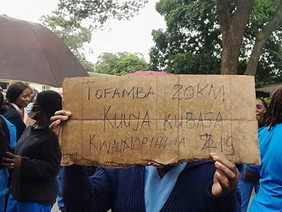 TOFAMBA 20KM
KUUYA KUBASA
KWAUNOPIHWA Z$19